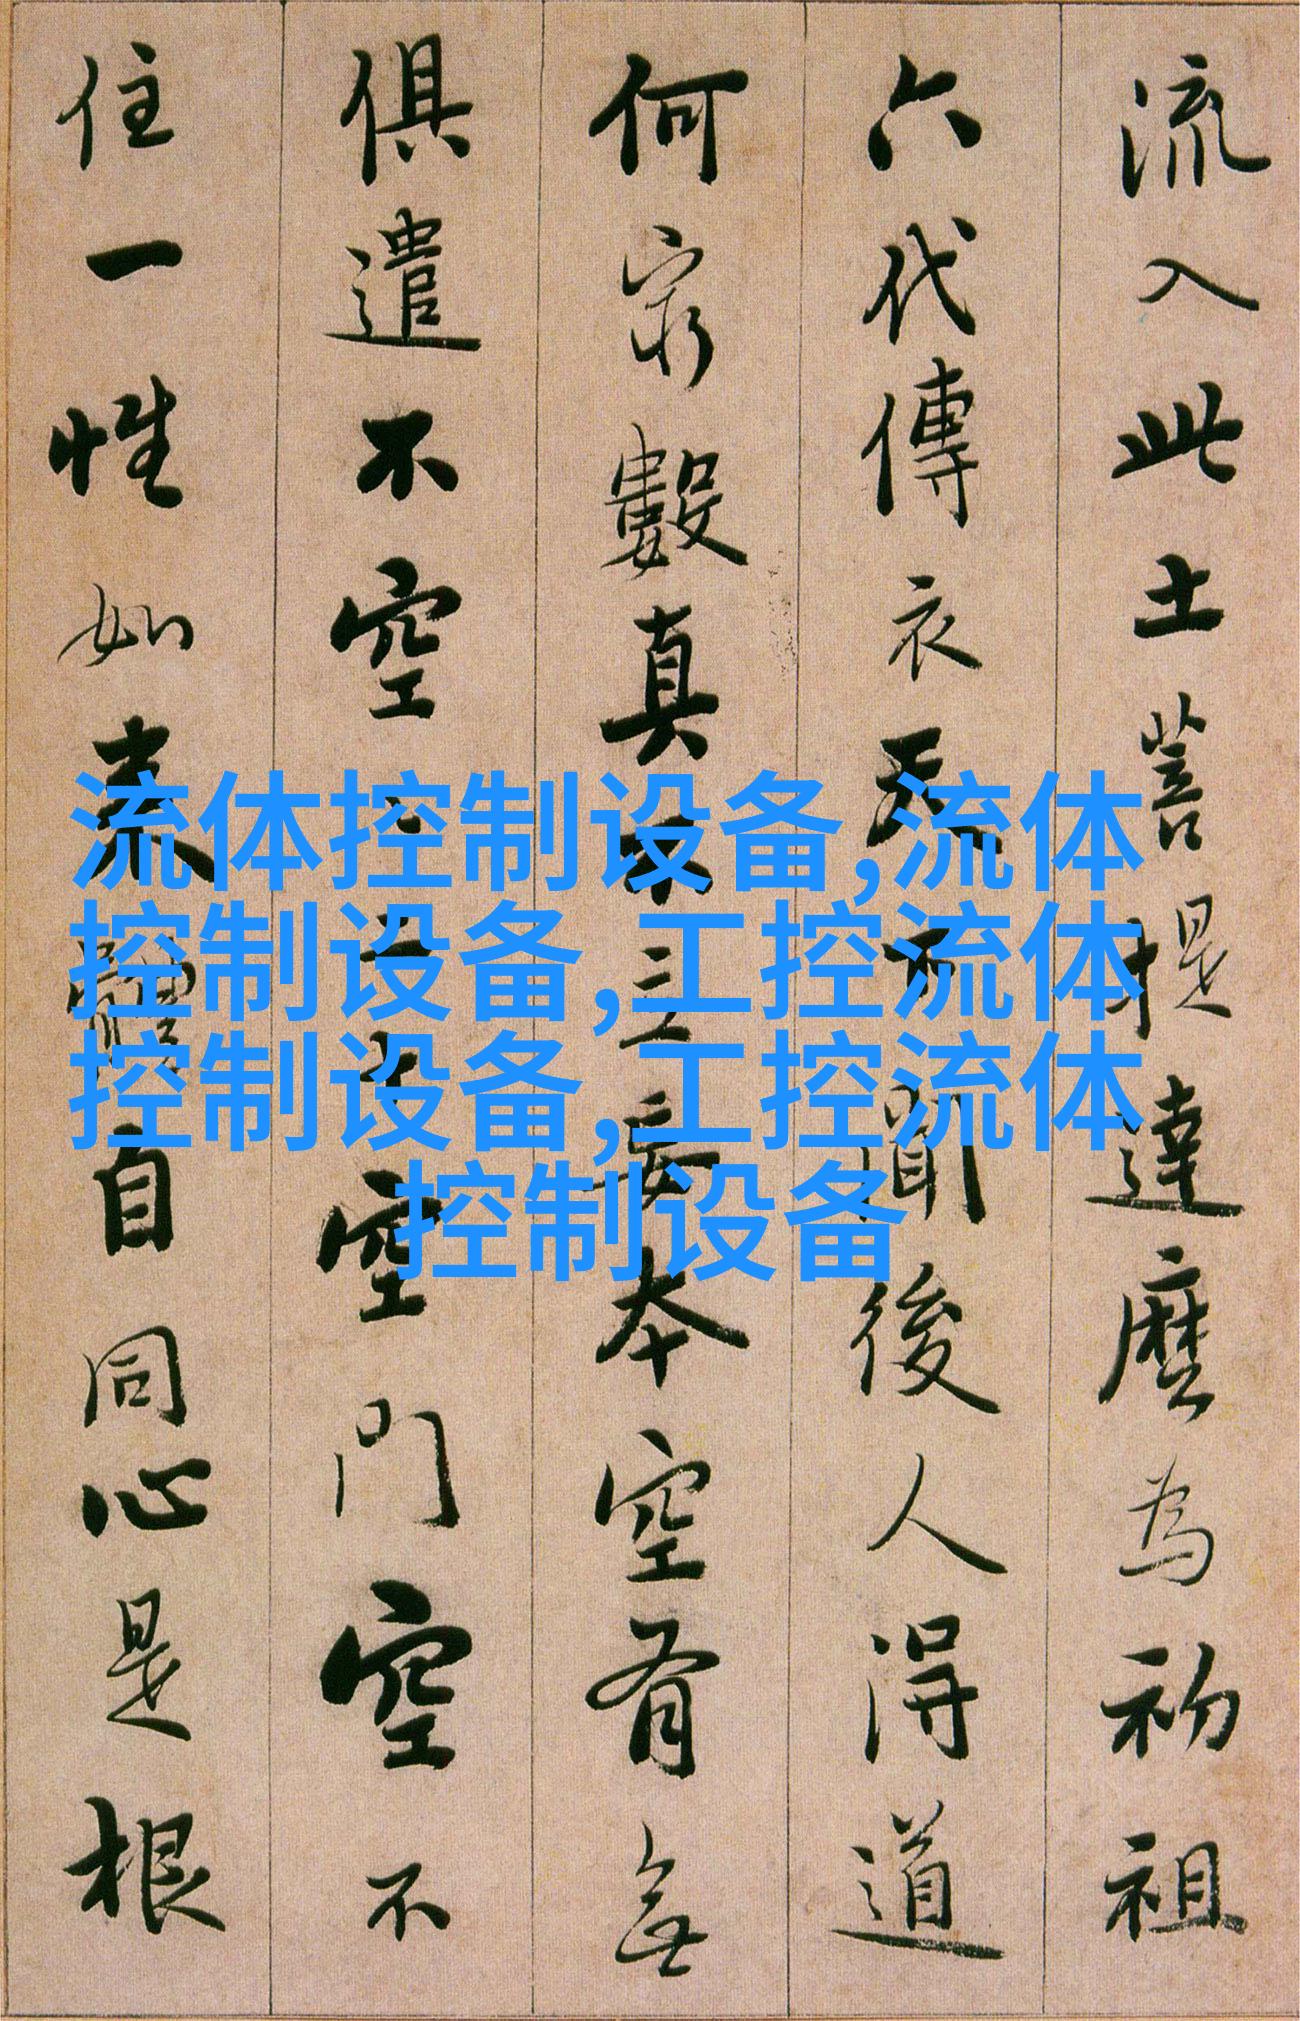 流入此土菩提達麼為初祖
六代傳衣天下聞後人得道
何窮數真不立妄本空有無
俱遣不空々二十空門空不
住一性如来體自同心是根
流体控制设备,流体
控制设备,工控流体
控制设备,工控流体
控制设备